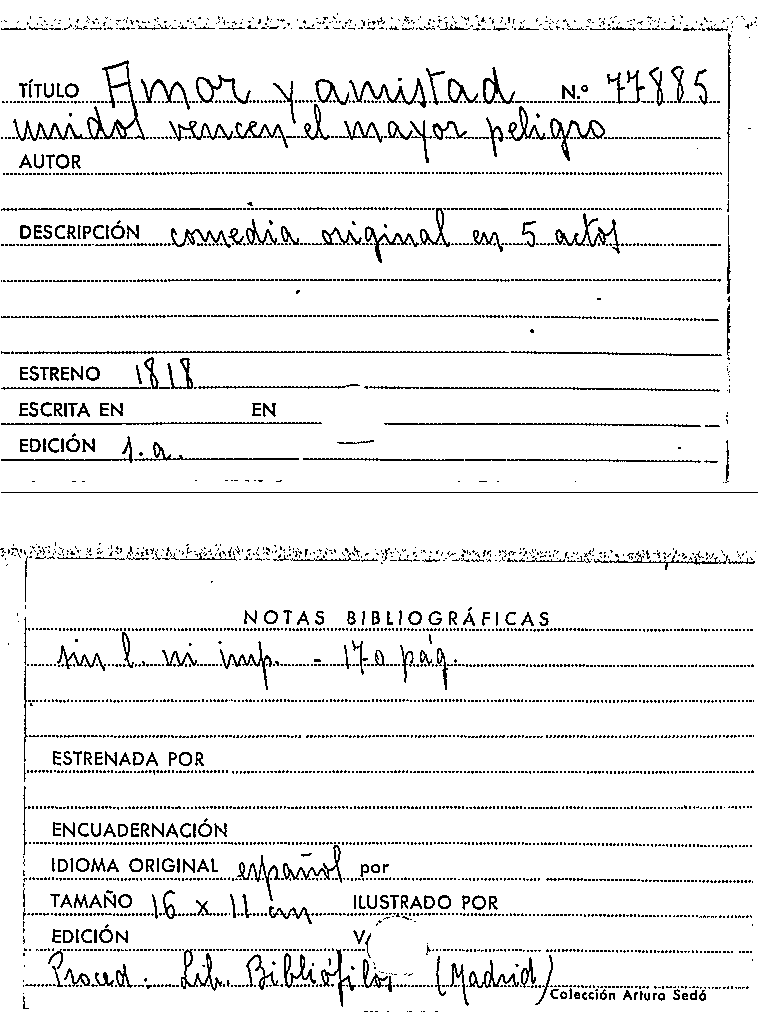 TÍTULO Amor y amistad N.º 77885
unidos vencen el mayor peligro
AUTOR
DESCRIPCIÓN comedia original en 5 actos
ESTRENO 1818
ESCRITA EN EN
EDICIÓN s.a.
NOTAS BIBLIOGRÁFICAS
sin l. ni imp. - 170 pág.
ESTRENADA POR
ENCUADERNACIÓN
IDIOMA ORIGINAL español por
TAMAÑO 16 x 11 cm ILUSTRADO POR
EDICIÓN
Proced. Lib. Bibliófilos (Madrid)
Colección Arturo Sedó